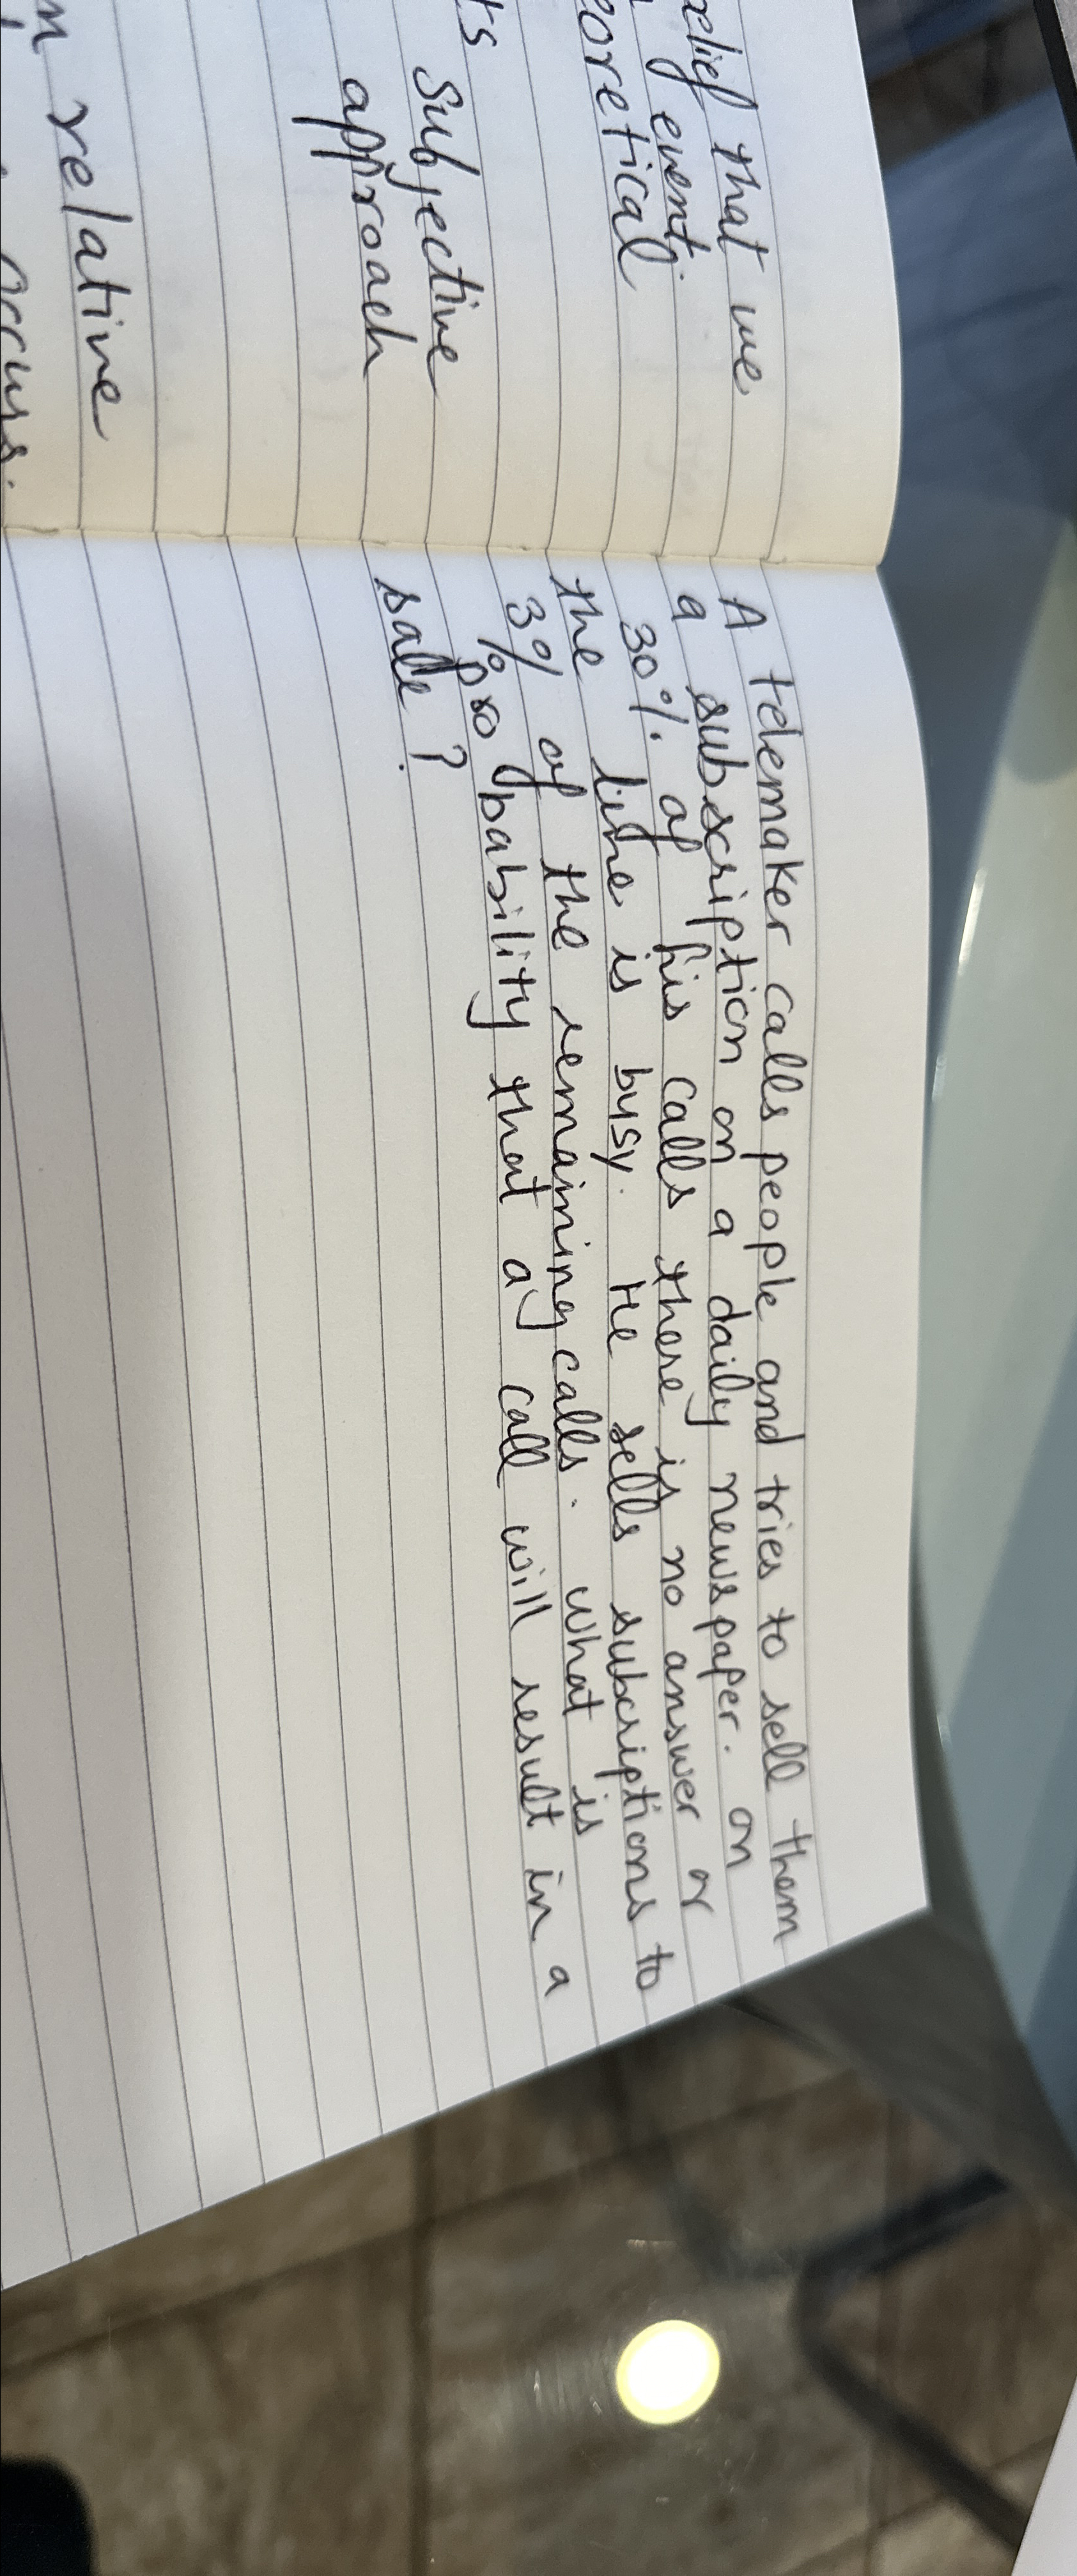 elief that we
event.
oretical
ts
Subjective
approach
m relative
occurs.
A telemaker calls people and tries to sell them
a subscription on a daily newspaper. on
30% of his calls there is no answer or
the line is busy. He sells subcriptions to
3% of the remaining calls. what is
probability that a call will result in a
sale ?